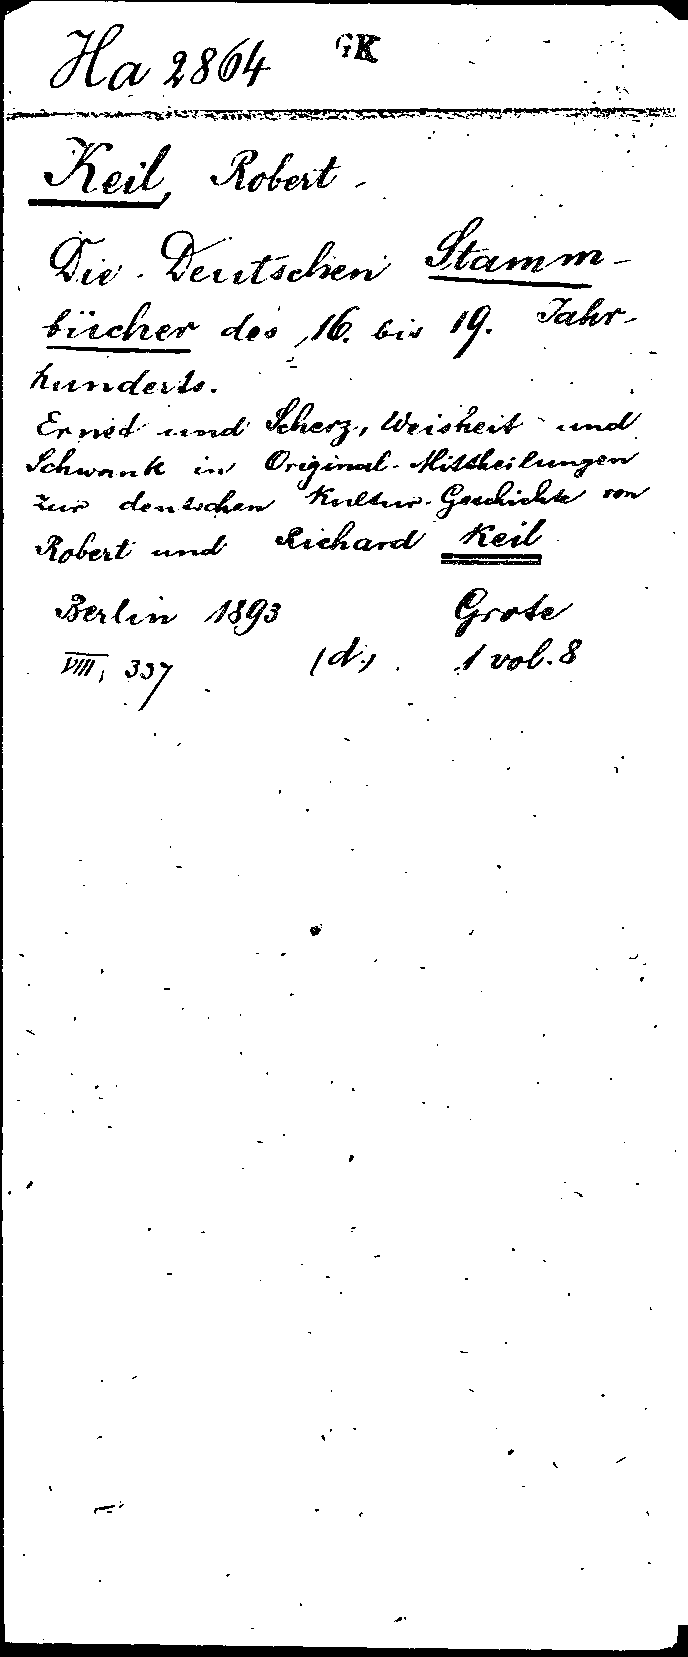 Ha 2864 GK
Keil, Robert.
Die Deutschen Stamm-
bücher des 16. bis 19. Jahr-
hunderts.
Ernst und Scherz, Weisheit und
Schwank in Original-Mittheilungen
zur deutschen Kultur-Geschichte von
Robert und Richard Keil
Berlin 1893 Grote
VIII, 337 (d.) 1 vol. 8